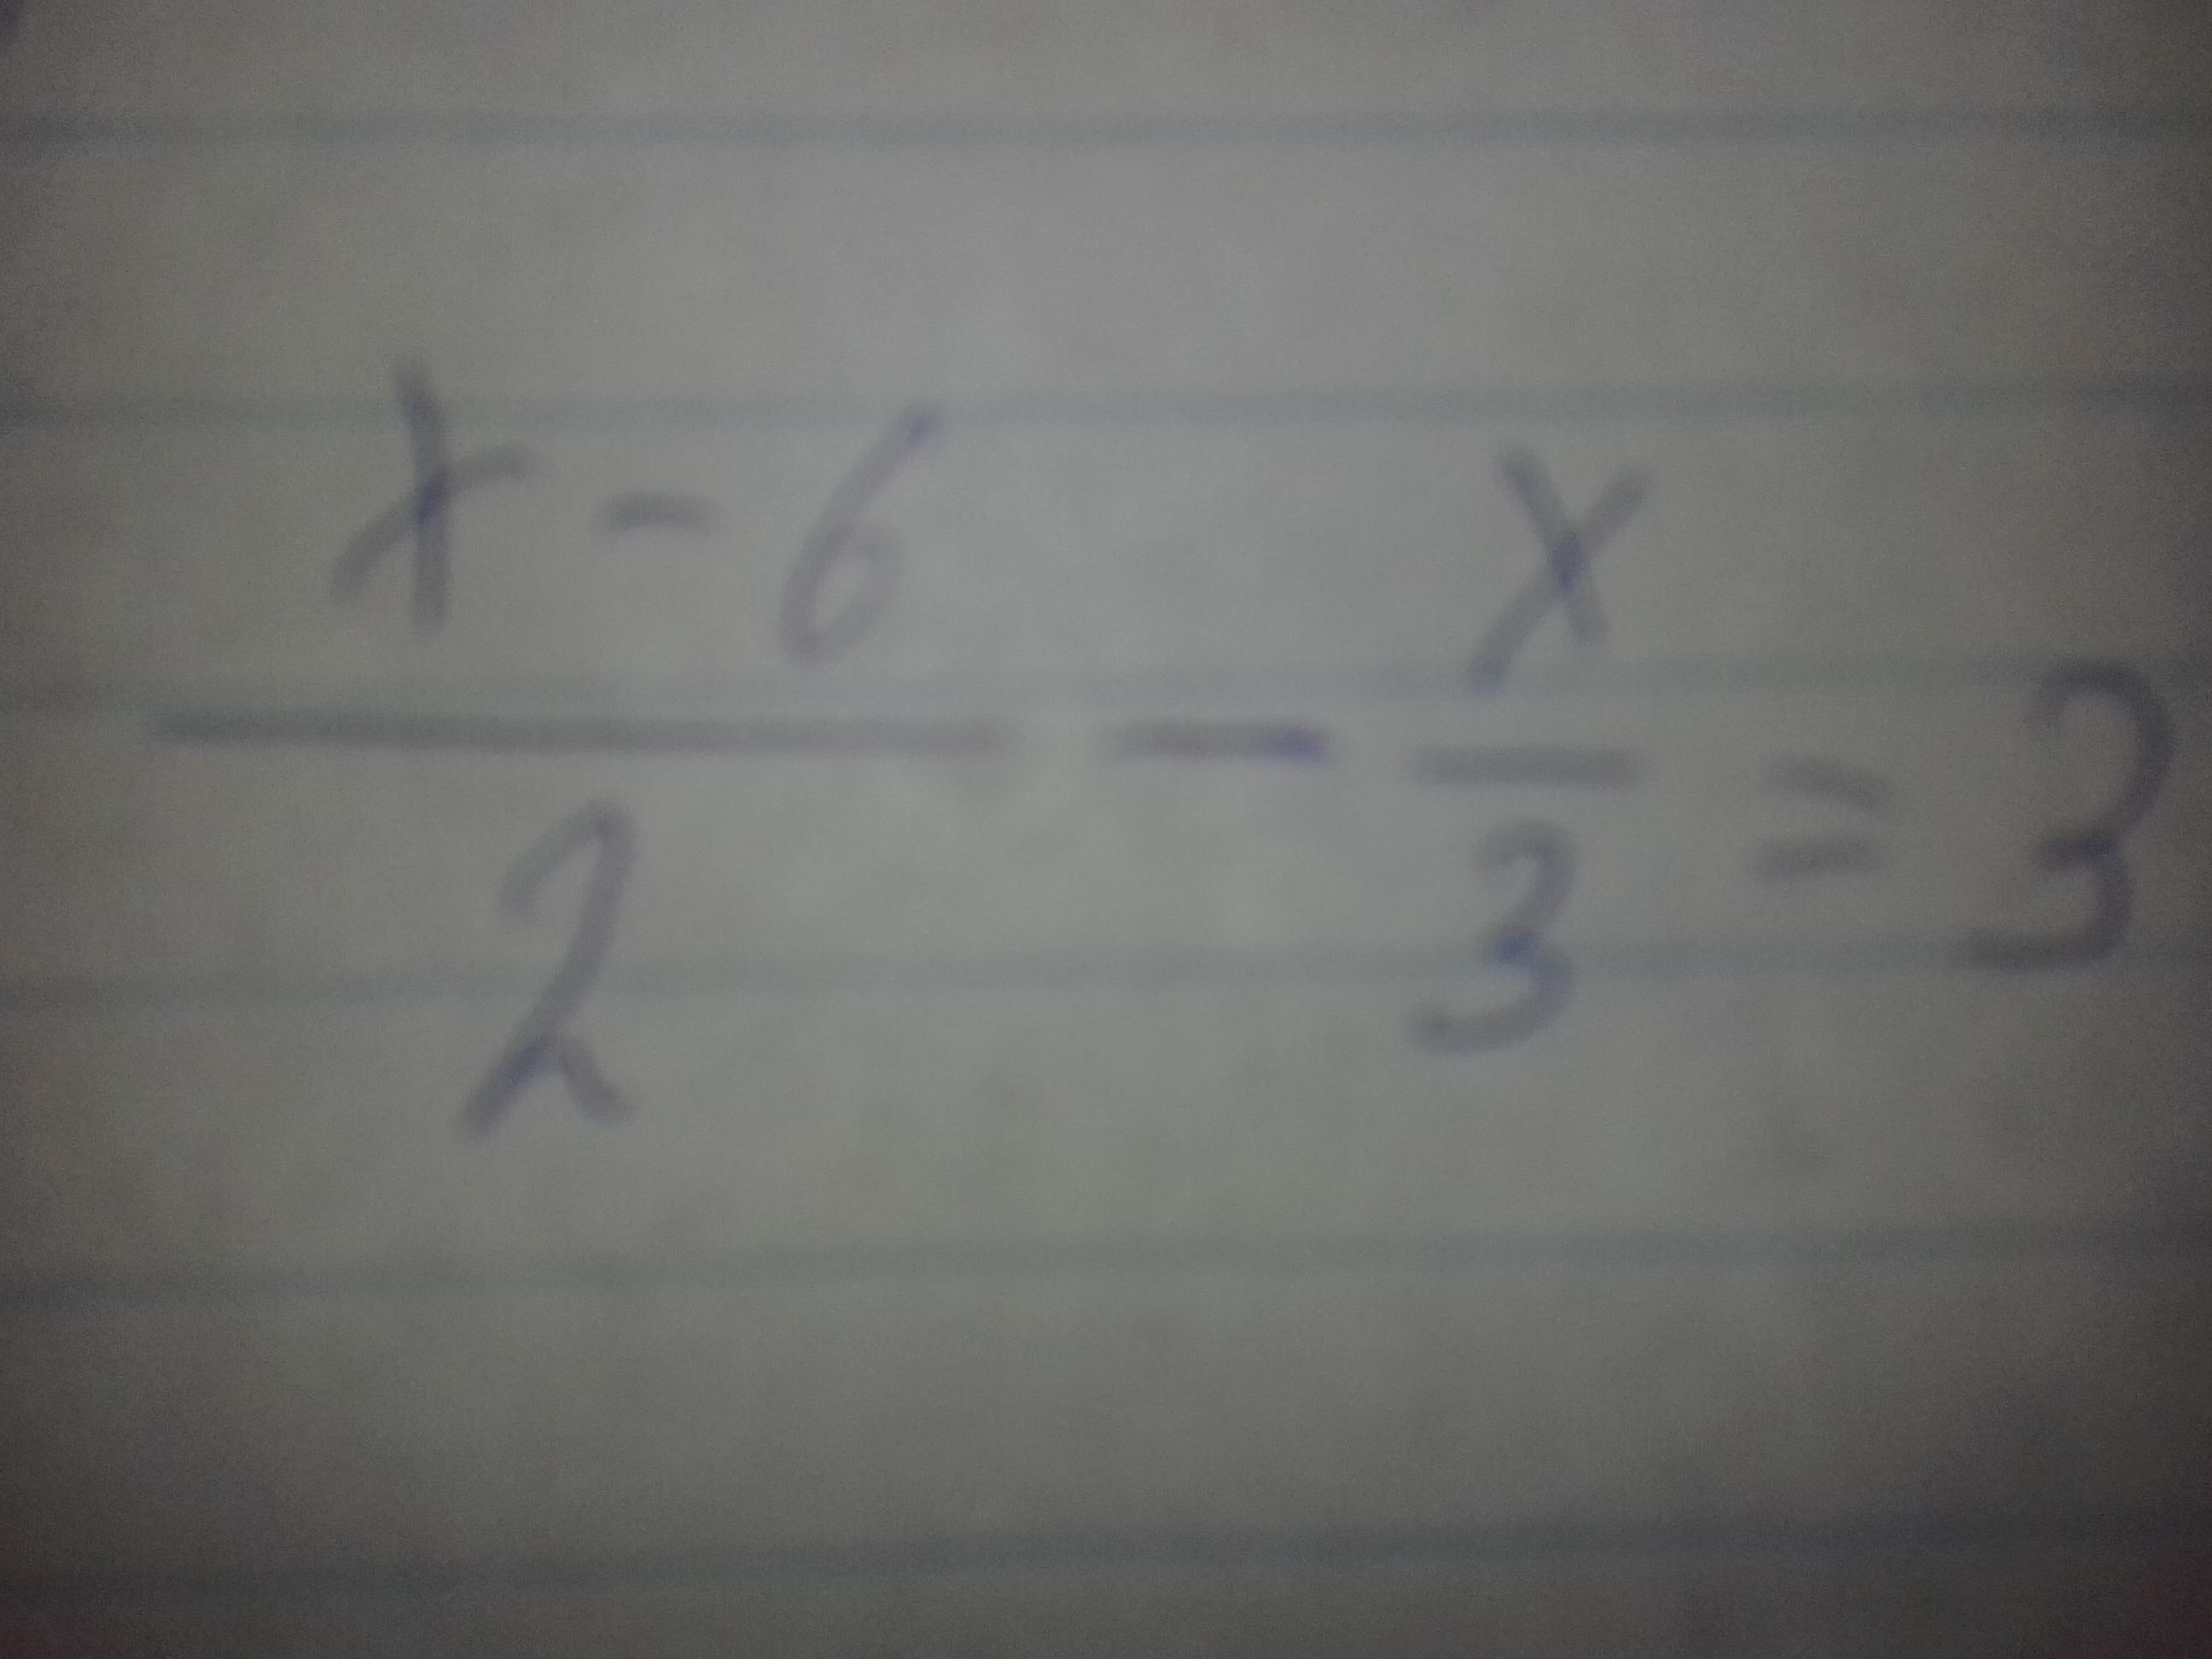 x - 6 / 2 - x / 3 = 3